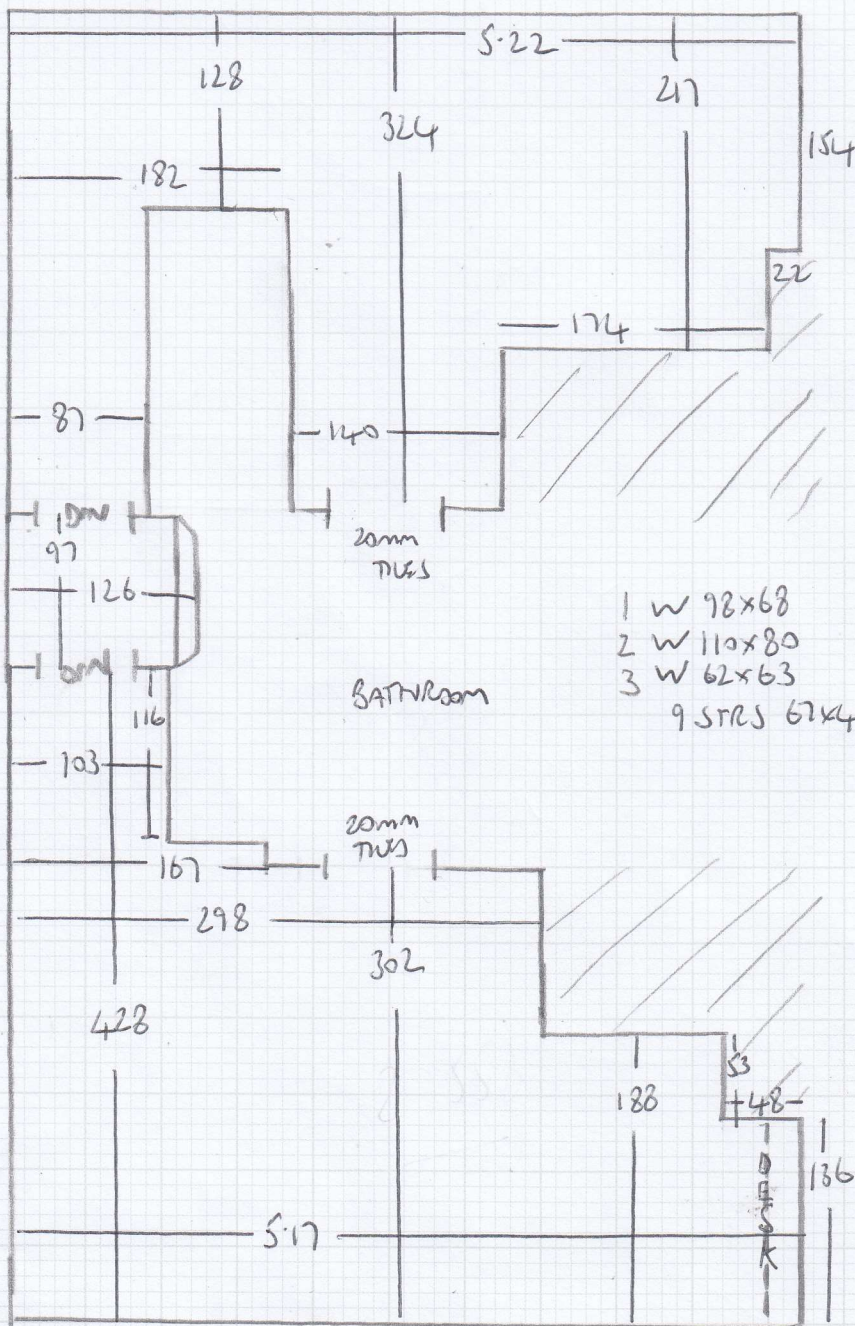 5.22
128
324
217
154
182
22
174
87
140
97
20mm
TILES
126
1 W 98x68
2 W 110x80
3 W 62x63
9 STRS 67x4
BATHROOM
116
103
20mm
TILES
167
298
302
428
53
188
48
136
DESK
5.17